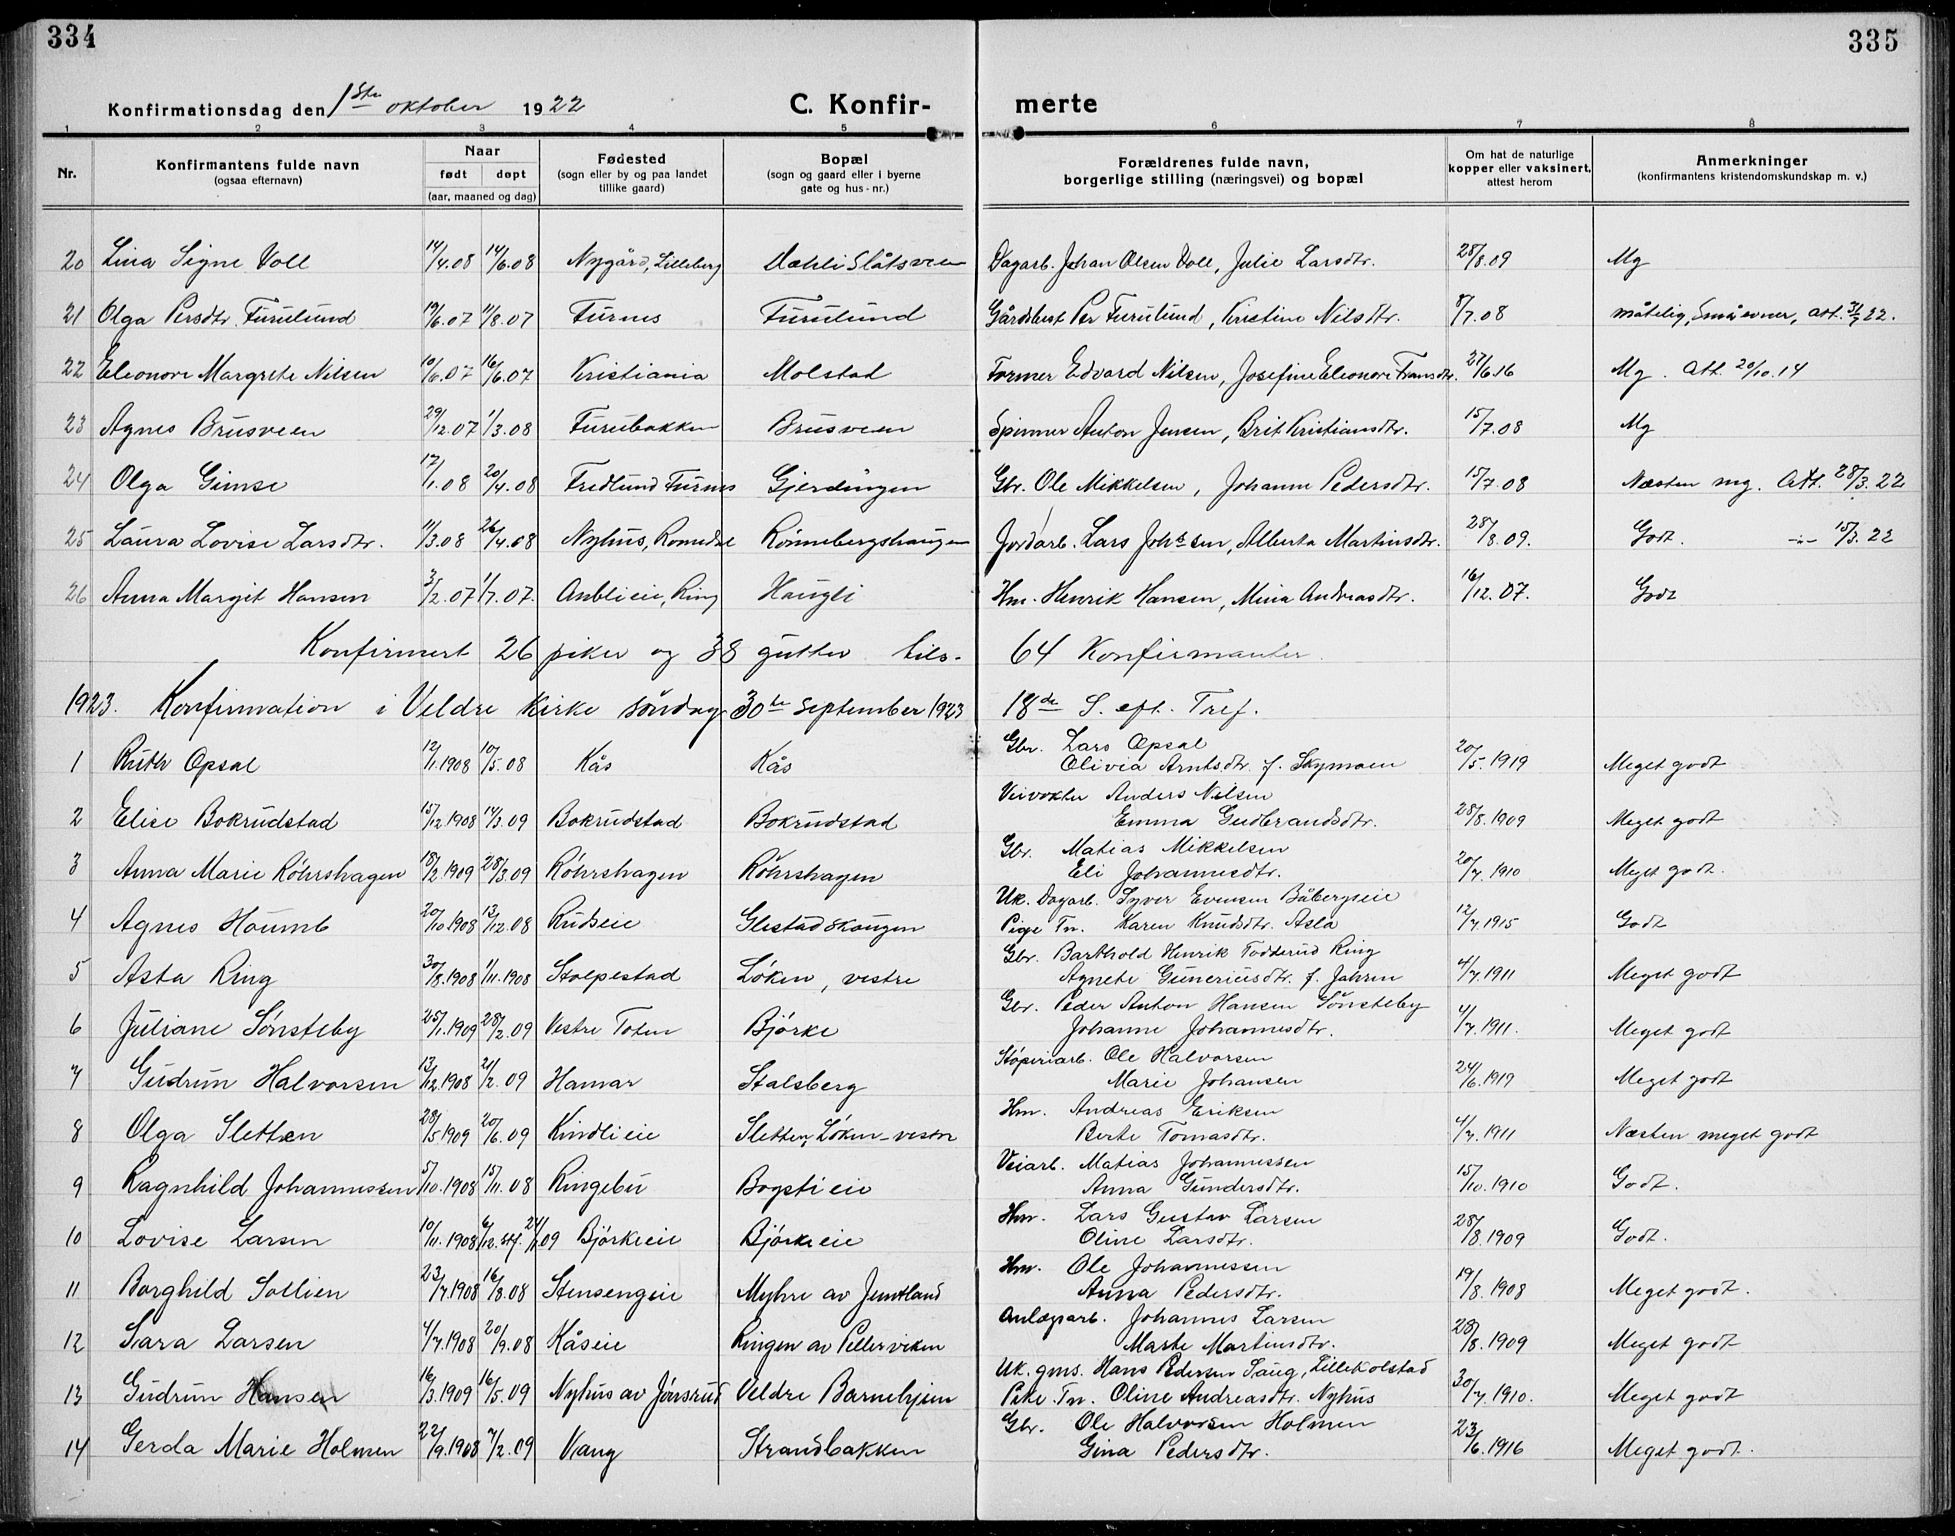 334
335
Konfirmationsdag den 1ste oktober 1922
C. Konfir-
merte
1 2 3 4 5 6 7 8
Nr.
Konfirmantens fulde navn
(ogsaa efternavn)
Naar
født døpt
(aar, maaned og dag)
Fødested
(sogn eller by og paa landet
tillike gaard)
Bopæl
(sogn og gaard eller i byerne
gate og hus-nr.)
Forældrenes fulde navn,
borgerlige stilling (næringsvei) og bopæl
Om hat de naturlige
kopper eller vaksinert,
attest herom
Anmerkninger
(konfirmantens kristendomskundskap m. v.)
20 Lina Signe Voll 14/4.08 14/6.08 Nygård, Lilleberg Mæhli Slåtsveen Dagarb. Johan Olsen Voll, Julie Larsdtr. 28/8.09 Mg
21 Olga Persdtr. Furulund 19/6.07 11/8.07 Furnes Furulund Gårdbest Per Furulund, Kristine Nilsdtr. 8/7.08 måtelig, Små evner, att. 22.
22 Eleonore Margrete Nilsen 10/6.07 16/6.07 Kristiania Molstad Former Edvard Nilsen, Josefine Eleonore Fransdtr. 27/6.16 Mg. Att. 20/10.14
23 Agnes Brusveen 29/12.07 1/3.08 Furubakken Brusveen Spinner Anton Jensen, Brit Kristiansdtr. 15/7.08 Mg
24 Olga Gimse 17/1.08 20/4.08 Fredlund Furnes Gjerdingen Gbr. Ole Mikkelsen, Johanne Pedersdtr. 15/7.08 Næsten mg. Att. 28/3.22
25 Laura Lovise Larsdtr. 11/3.08 26/4.08 Nyhus, Romedal Rönnebergshaugen Jordarb. Lars Johssen, Alberta Martinsdtr. 28/8.09. Godt. -"- 15/3.22
26 Anna Margit Hansen 3/2.07 1/7.07. Anbli eie, Ring Haugli Hm. Henrik Hansen, Mina Andreasdtr. 16/12.07. Godt
Konfirmert 26 piker og 38 gutter tils. 64 Konfirmanter.
1923. Konfirmation i Veldre kirke søndag 30te September 1923 18de S. eft. Tref.
Gbr. Lars Opsal
1 Ruth Opsal 12/1.1908 10/5.08 Kås Kås Olivia Arntsdtr. f. Skymoen 20/5.1919 Meget godt
Veivokter Anders Nilsen
2 Elise Bokrudstad 15/12.1908 14/3.09 Bokrudstad Bokrudstad Emma Gudbrandsdtr. 28/8.1909 Meget godt
Gbr. Matias Mikkelsen
3 Anna Marie Röhrshagen 18/2.1909 28/3.09 Röhrshagen Röhrshagen Eli Johannesdtr. 20/7.1910 Meget godt.
Uk. Dagarb. Syver Evensen Båbergseie
4 Agnes Houmb 20/10.1908 13/12.08 Rudseie Glestadskougen Pige Tn. Karen Knudsdtr. Asla 12/7.1915 Godt
Gbr. Barthold Henrik Todderud Ring
5 Asta Ring 30/8.1908 1/11.1908 Stolpestad Løken, vestre Agnete Gunericusdtr. f. Jahren 4/7.1911 Meget godt
Gbr. Peder Anton Hansen Sönsteby
6 Juliane Sønsteby 25/1.1909 28/2.09 Vestre Toten Bjørke Johanne Johannesdtr. 4/7.1911. Meget godt
Støperiarb. Ole Halvorsen
7 Gudrun Halvorsen 13/12.1908 21/2.09 Hamar Stalsberg Marie Johansen 24/6.1919 Meget godt
Hm. Andreas Eriksen
8 Olga Sletten 28/5.1909 20/6.09 Kindli eie Sletten, Løken-vestre Berte Tomasdtr. 4/7.1911 Næsten meget godt
Veiarb. Matias Johannessen
9 Ragnhild Johannessen 5/10.1908 15/11.08 Ringebu Bogsti eie Anna Gundersdtr. 15/10.1910 Godt.
Hm. Lars Gustav Larsen
10 Lovise Larsen 10/11.1908 6/12. stf. 09 Bjørkeeie Bjørkeeie Oline Larsdtr. 28/8.1909 Godt.
Hm. Ole Johannessen
11 Borghild Sollien 23/7.1908 16/8.08 Stensengeie Myhre av Jemtland Anna Pedersdtr. 19/8.1908 Meget godt.
Anlægsarb. Johannes Larsen
12 Sara Larsen 4/7.1908 20/9.08 Kåseie Ringen av Pellerviken Marte Martinsdtr. 28/8.1909 Meget godt
Uk. gms. Hans Pedersen Saug, Lillekolstad
13 Gudrun Hansen 16/3.1909 16/5.09 Nyhus av Jönsrud Veldre Barnehjem Pike Tn. Oline Andreasdtr. Nyhus 30/7.1910. Meget godt
Gbr. Ole Halvorsen Holmen
14 Gerda Marie Holmen 22/9.1908 7/2.09 Vang Strandbakken Gina Pedersdtr. 23/6.1916 Meget godt.